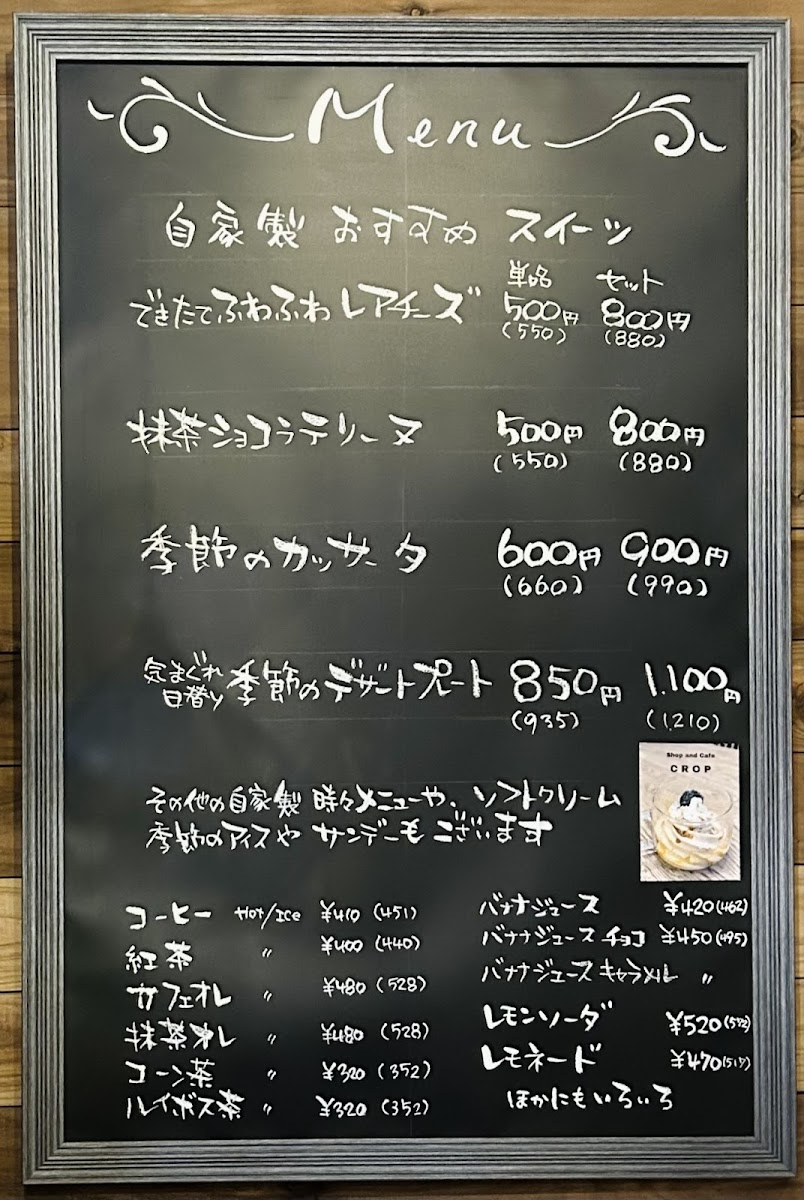 Menu
自家製 おすすめ スイーツ
単品 セット
できたてふわふわレアチーズ 500円 800円
(550) (880)
抹茶ショコラテリーヌ 500円 800円
(550) (880)
季節のカッサータ 600円 900円
(660) (990)
気まぐれ
日替り 季節のデザートプレート 850円 1,100円
(935) (1,210)
Shop and Cafe
CROP
その他の自家製 時々メニューや、ソフトクリーム
季節のアイスや サンデーもございます
コーヒー Hot/Ice ¥410 (451)
紅茶 〃 ¥400 (440)
カフェオレ 〃 ¥480 (528)
抹茶オレ 〃 ¥480 (528)
コーン茶 〃 ¥320 (352)
ルイボス茶 〃 ¥320 (352)
バナナジュース ¥420 (462)
バナナジュース チョコ ¥450 (495)
バナナジュース キャラメル 〃
レモンソーダ ¥520 (572)
レモネード ¥470 (517)
ほかにもいろいろ